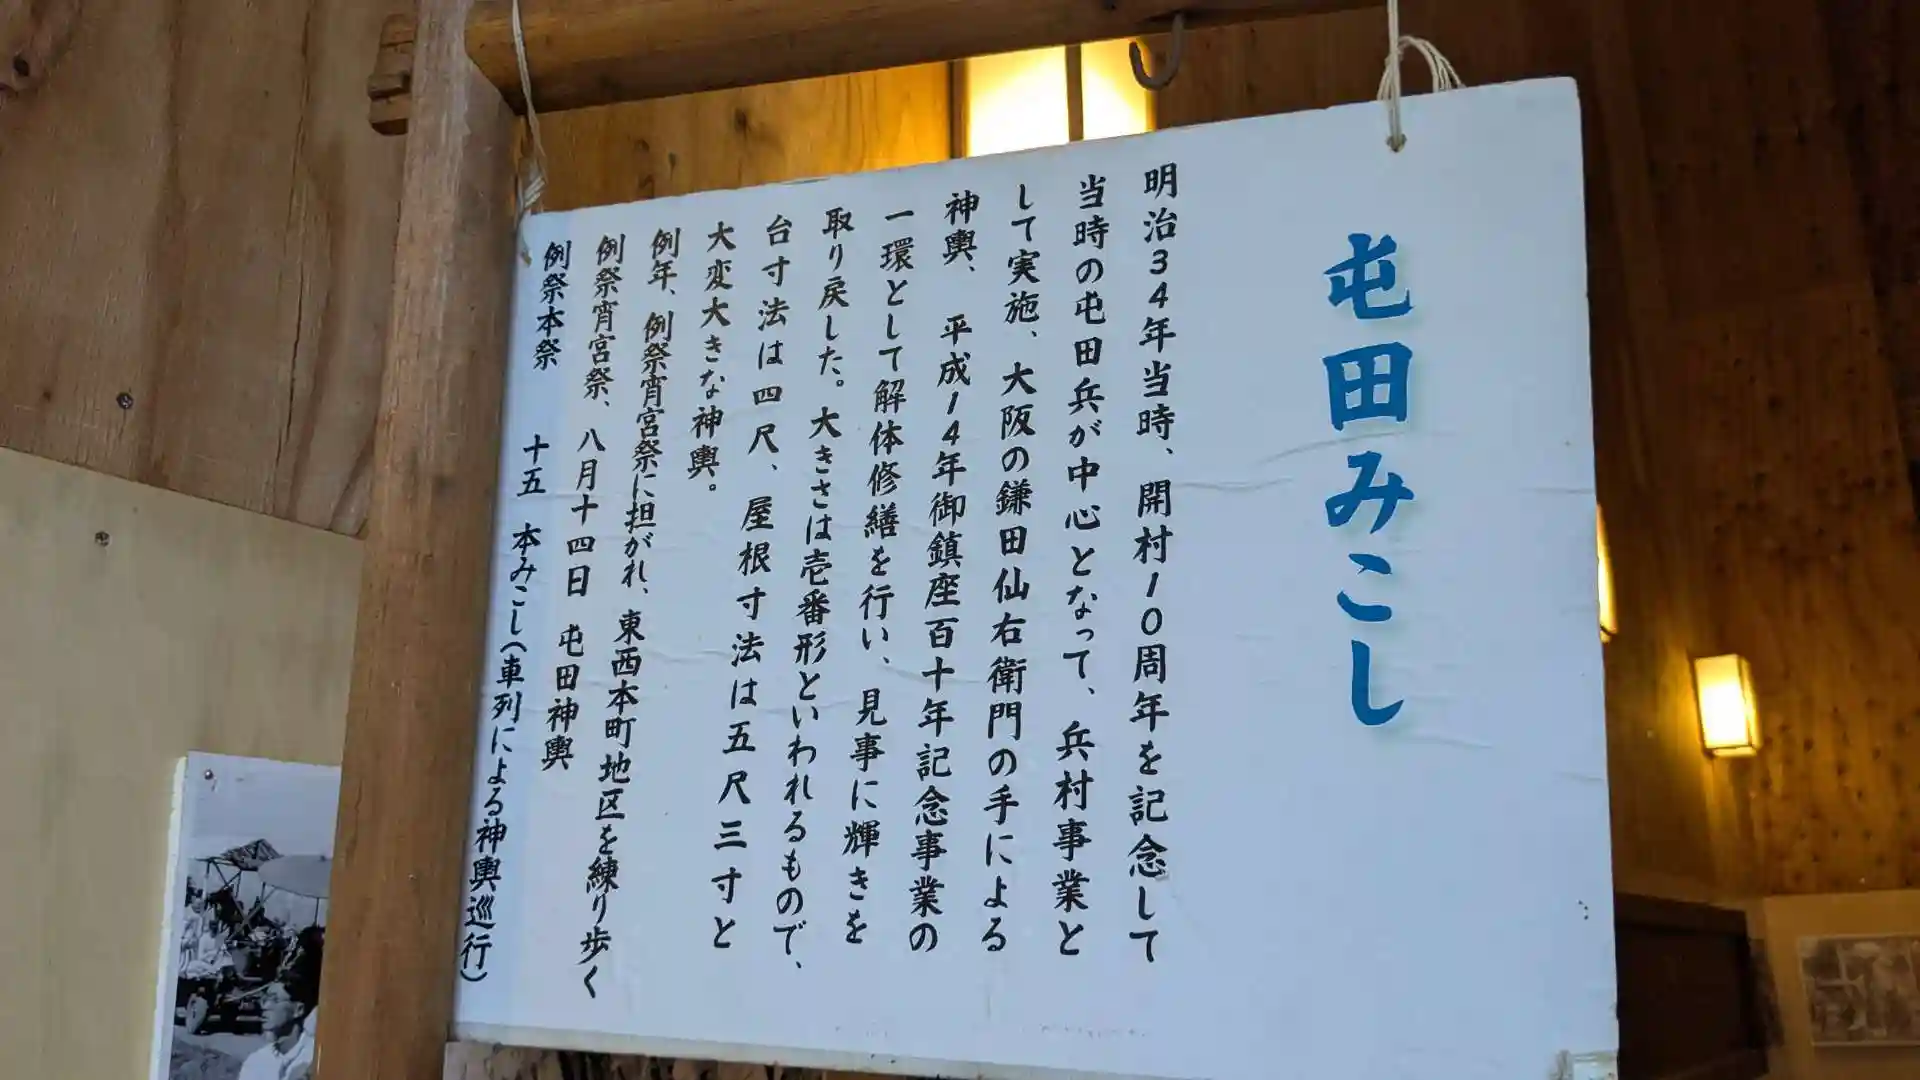 屯田みこし
明治34年当時、開村10周年を記念して
当時の屯田兵が中心となって、兵村事業と
して実施、大阪の鎌田仙右衛門の手による
神輿、平成14年御鎮座百十年記念事業の
一環として解体修繕を行い、見事に輝きを
取り戻した。大きさは壱番形といわれるもので、
台寸法は四尺、屋根寸法は五尺三寸と
大変大きな神輿。
例年、例祭宵宮祭に担がれ、東西本町地区を練り歩く
例祭宵宮祭、八月十四日 屯田神輿
例祭本祭 十五 本みこし(車列による神輿巡行)